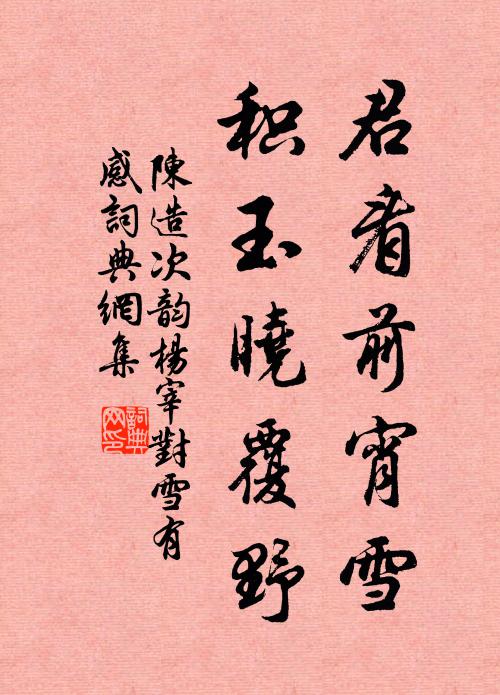 君看前宵雪
积玉曉覆野
陳造次韵楊宰對雪有
感詞典網集
詞典网印